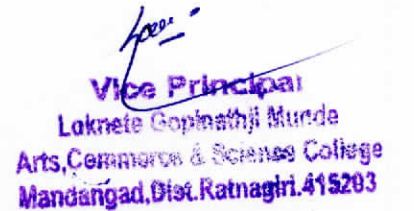 Vice Principal
Loknete Gopinathji Munde
Arts,Commerce & Science College
Mandangad,Dist.Ratnagiri.415203